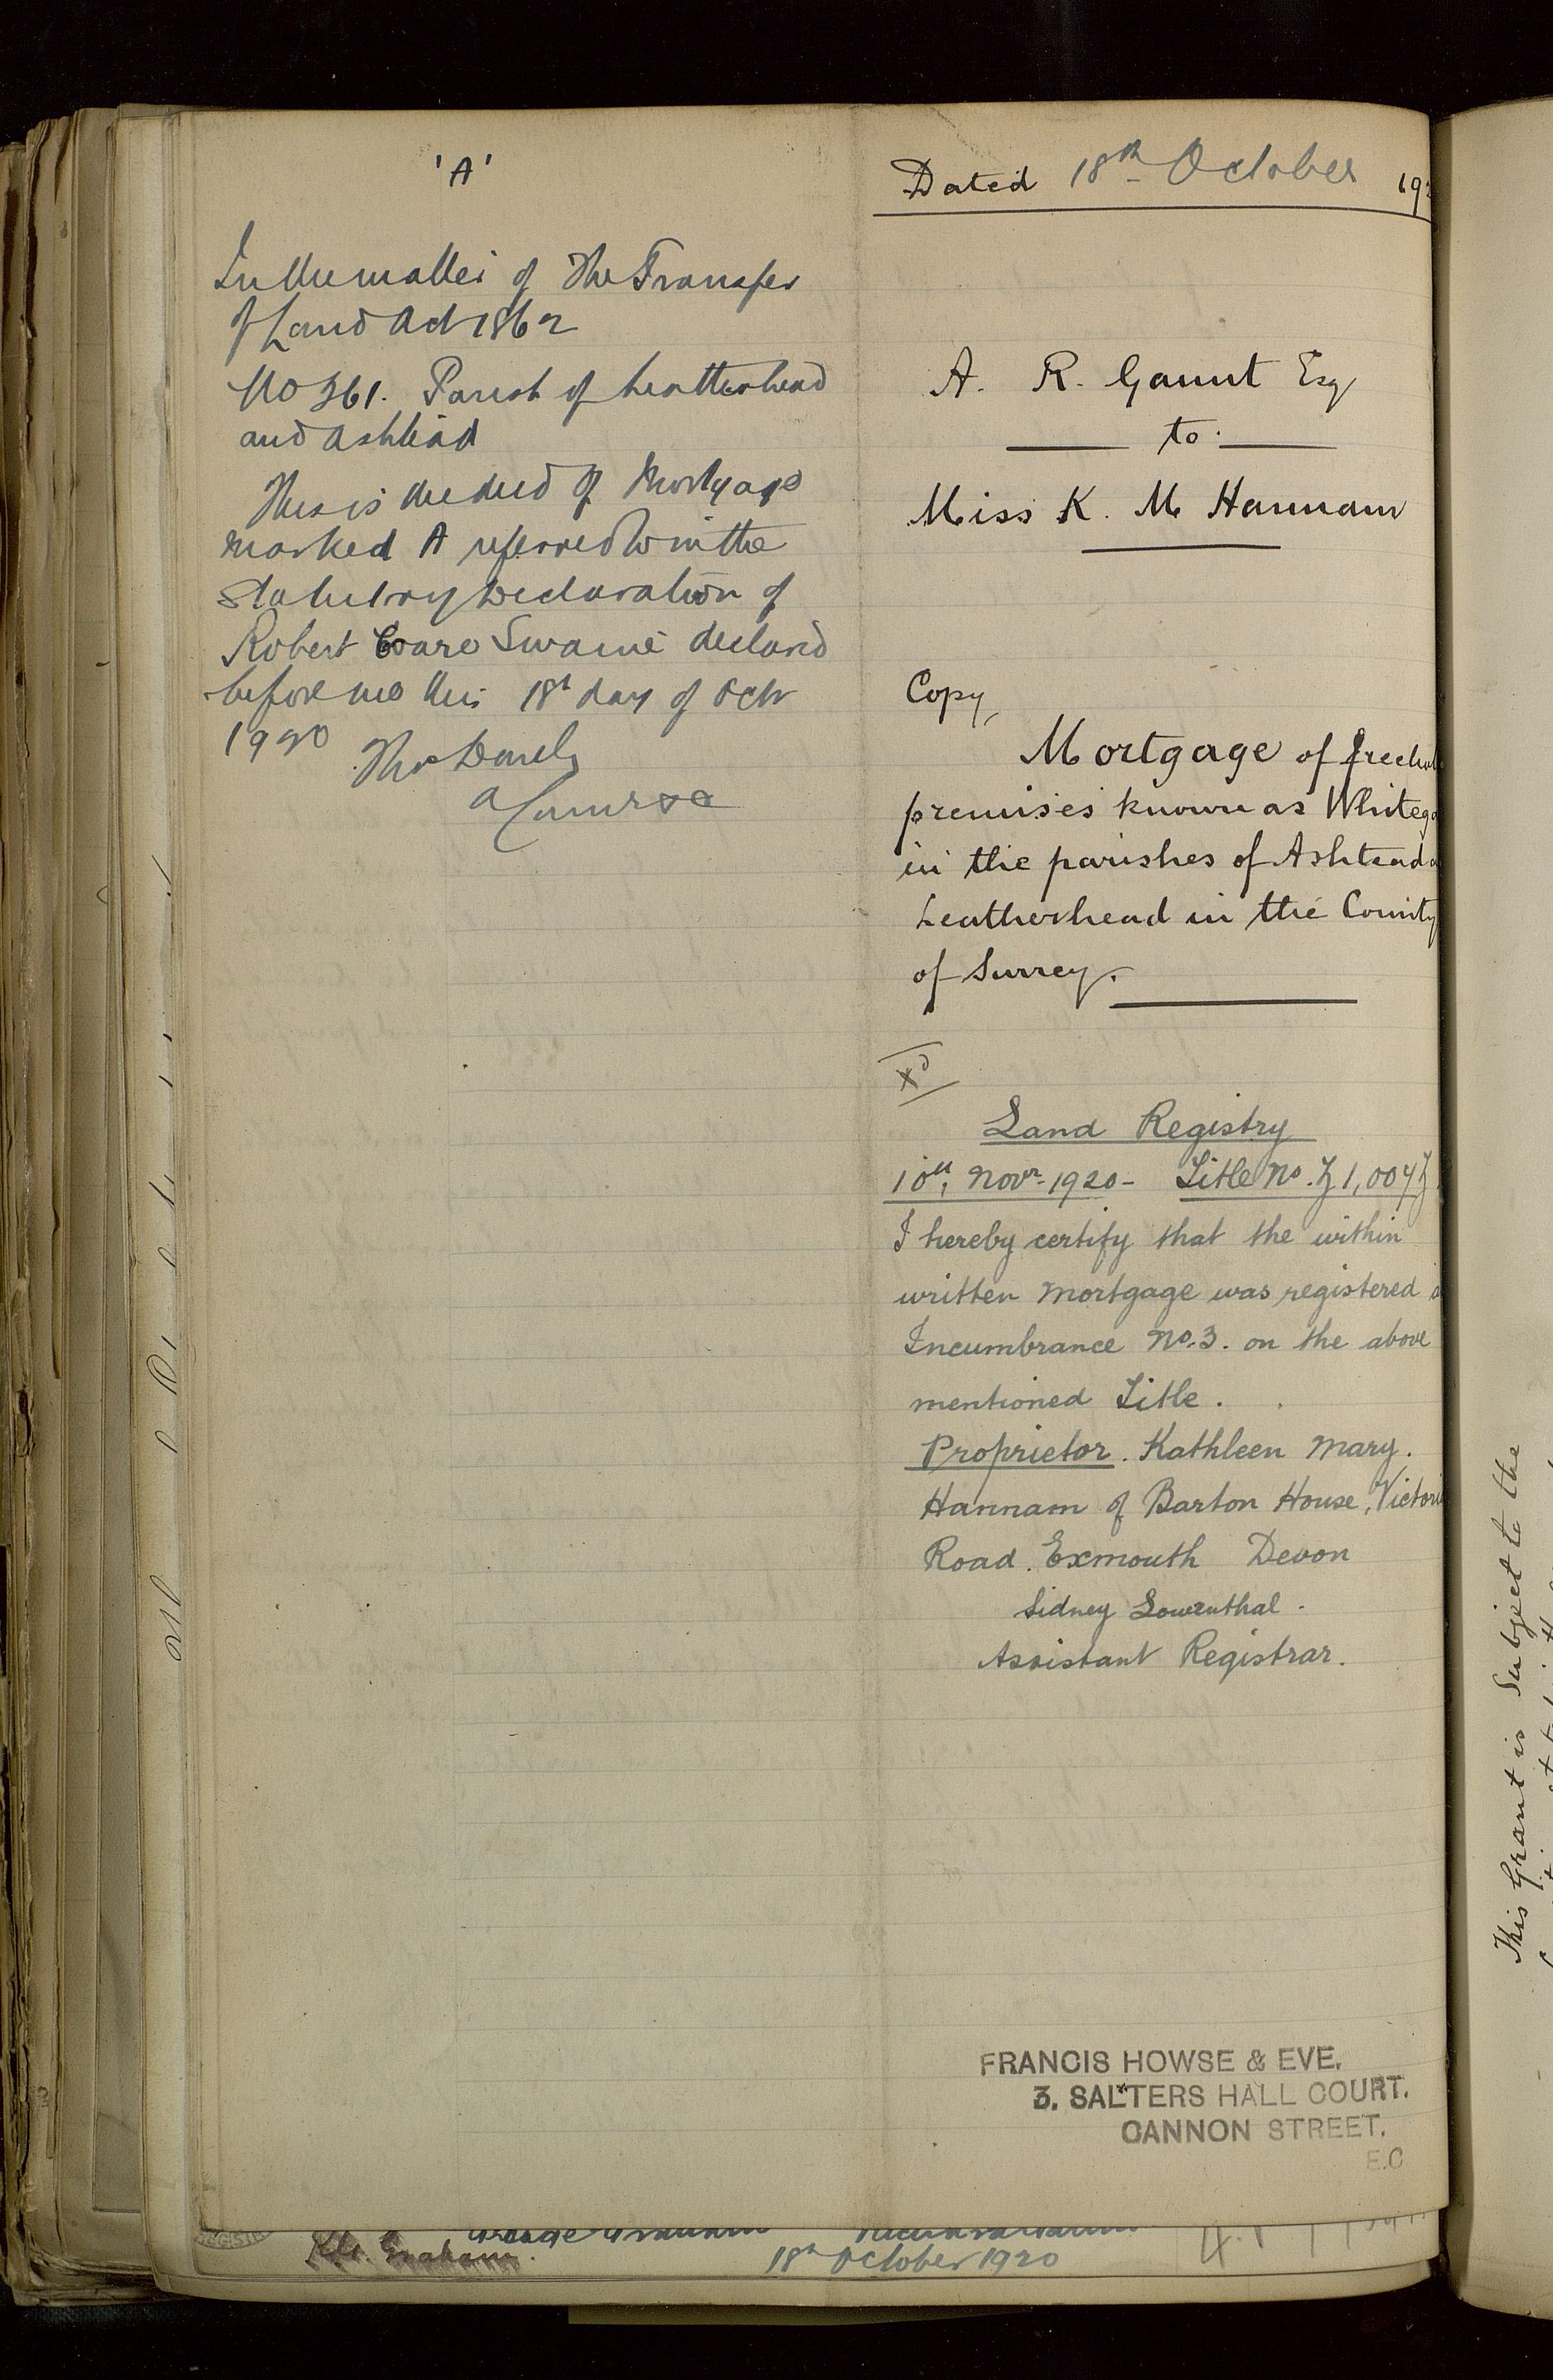 'A'
In the matter of The Transfer
of Land Act 1862
No 361. Parish of Leatherhead
and Ashtead
This is the deed of Mortgage
marked A referred to in the
Statutory Declaration of
Robert Coare Swaine declared
before me this 18th day of Octr
1920
Dated 18th October 192
A. R. Gaunt Esq
to
Miss K. M Hannam
Copy,
Mortgage of freehol
premises known as Whitega
in the parishes of Ashtead a
Leatherhead in the County
of Surrey.
Xd
Land Registry
10th Novr. 1920 - Title No.
I hereby certify that the within
written Mortgage was registered a
Incumbrance No. 3. on the above
mentioned Title.
Proprietor. Kathleen Mary.
Hannam of Barton House, Victoria
Road. Exmouth Devon
Sidney Lowenthal.
Assistant Registrar.
FRANCIS HOWSE & EVE.
3. SALTERS HALL COURT.
CANNON STREET.
E.C
Graham.
18th October 1920
This Grant is Subject to the